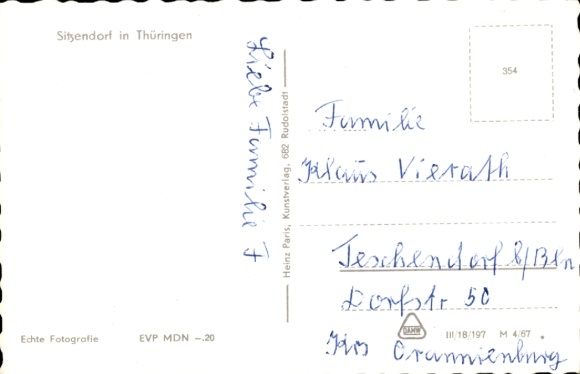 Sitzendorf in Thüringen
Liebe Familie F
Heinz Paris, Kunstverlag, 682 Rudolstadt
354
Familie
Klaus Vierath
Teschendorf b/Bln,
Dorfstr 50
Krs Orannienburg
Echte Fotografie EVP MDN –.20
III/18/197 M 4/67